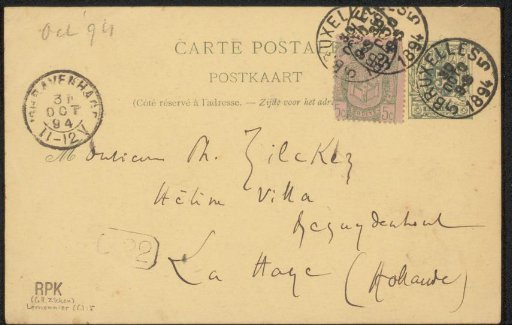 Oct '94
CARTE POSTALE
POSTKAART
(Côté réservé à l'adresse. — Zijde voor het adres
BRUXELLES 5
1894
BRUXELLES 5
1894
5c 5c
'S GRAVENHAGE
31
OCT
94
11-12V
Monsieur Ph. Zilcken
Hélène Villa
Bezuydenhout
La Haye (Hollande)
RPK
(Ph. Zilcken)
Lemonnier (C) : 5